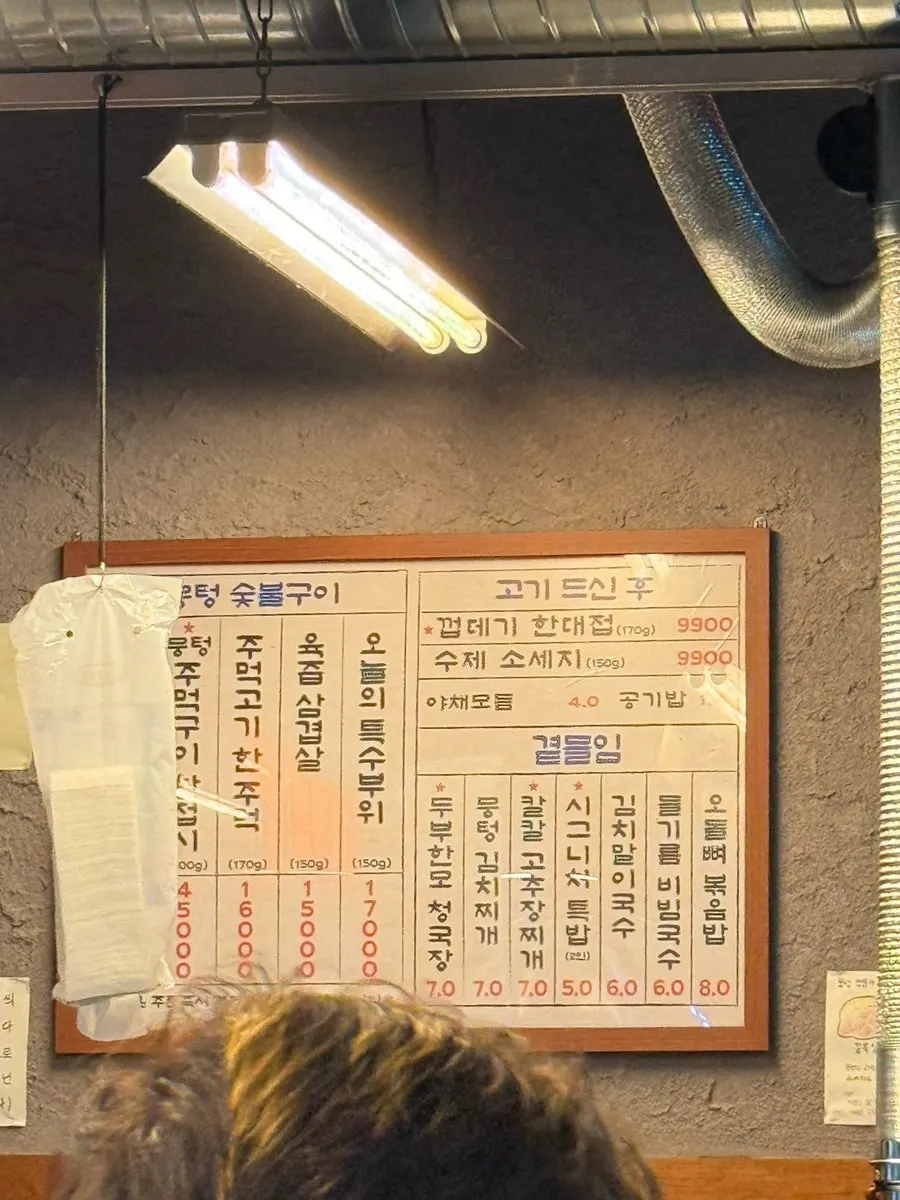 뭉텅 숯불구이
뭉텅 주먹구이 한접시
4 5 0 0 0
주먹고기 한주먹 (170g)
1 6 0 0 0
육즙 삼겹살 (150g)
1 5 0 0 0
오늘의 특수부위 (150g)
1 7 0 0 0
고기 드신 후
껍데기 한대접 (170g) 9900
수제 소세지 (150g) 9900
야채모듬 4.0 공기밥
곁들임
두부한모 청국장 7.0
뭉텅 김치찌개 7.0
칼칼 고추장찌개 7.0
시그니처 특밥 (2인) 5.0
김치말이국수 6.0
들기름 비빔국수 6.0
오돌뼈 볶음밥 8.0